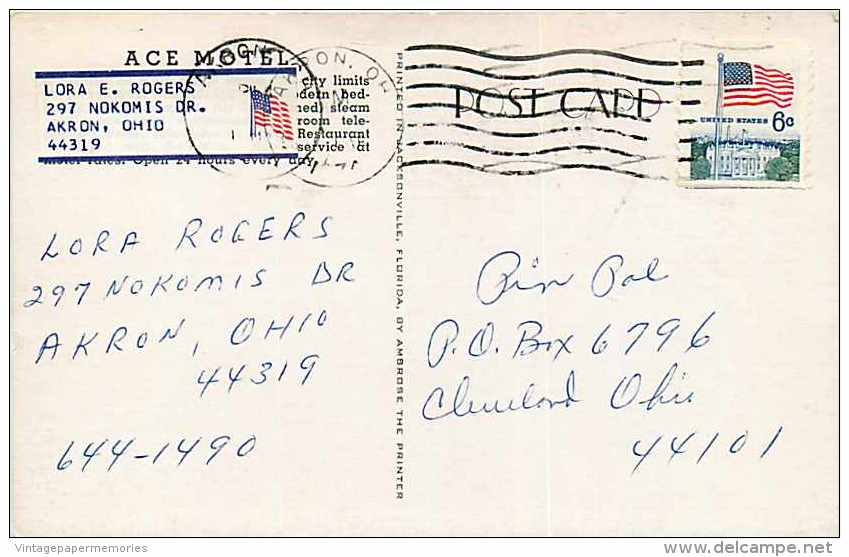 ACE MOTEL
LORA E. ROGERS
297 NOKOMIS DR.
AKRON, OHIO
44319
city limits
dern bed-
ed) steam
room tele-
Restaurant
service at
motel rates. Open 24 hours every day.
AKRON, OH
POST CARD
UNITED STATES 6c
PRINTED IN JACKSONVILLE, FLORIDA, BY AMBROSE THE PRINTER
LORA ROGERS
297 NOKOMIS DR
AKRON, OHIO
44319
644-1490
Pin Pal
P.O. Box 6796
Cleveland Ohio
44101
Vintagepapermemories
delcampe.net